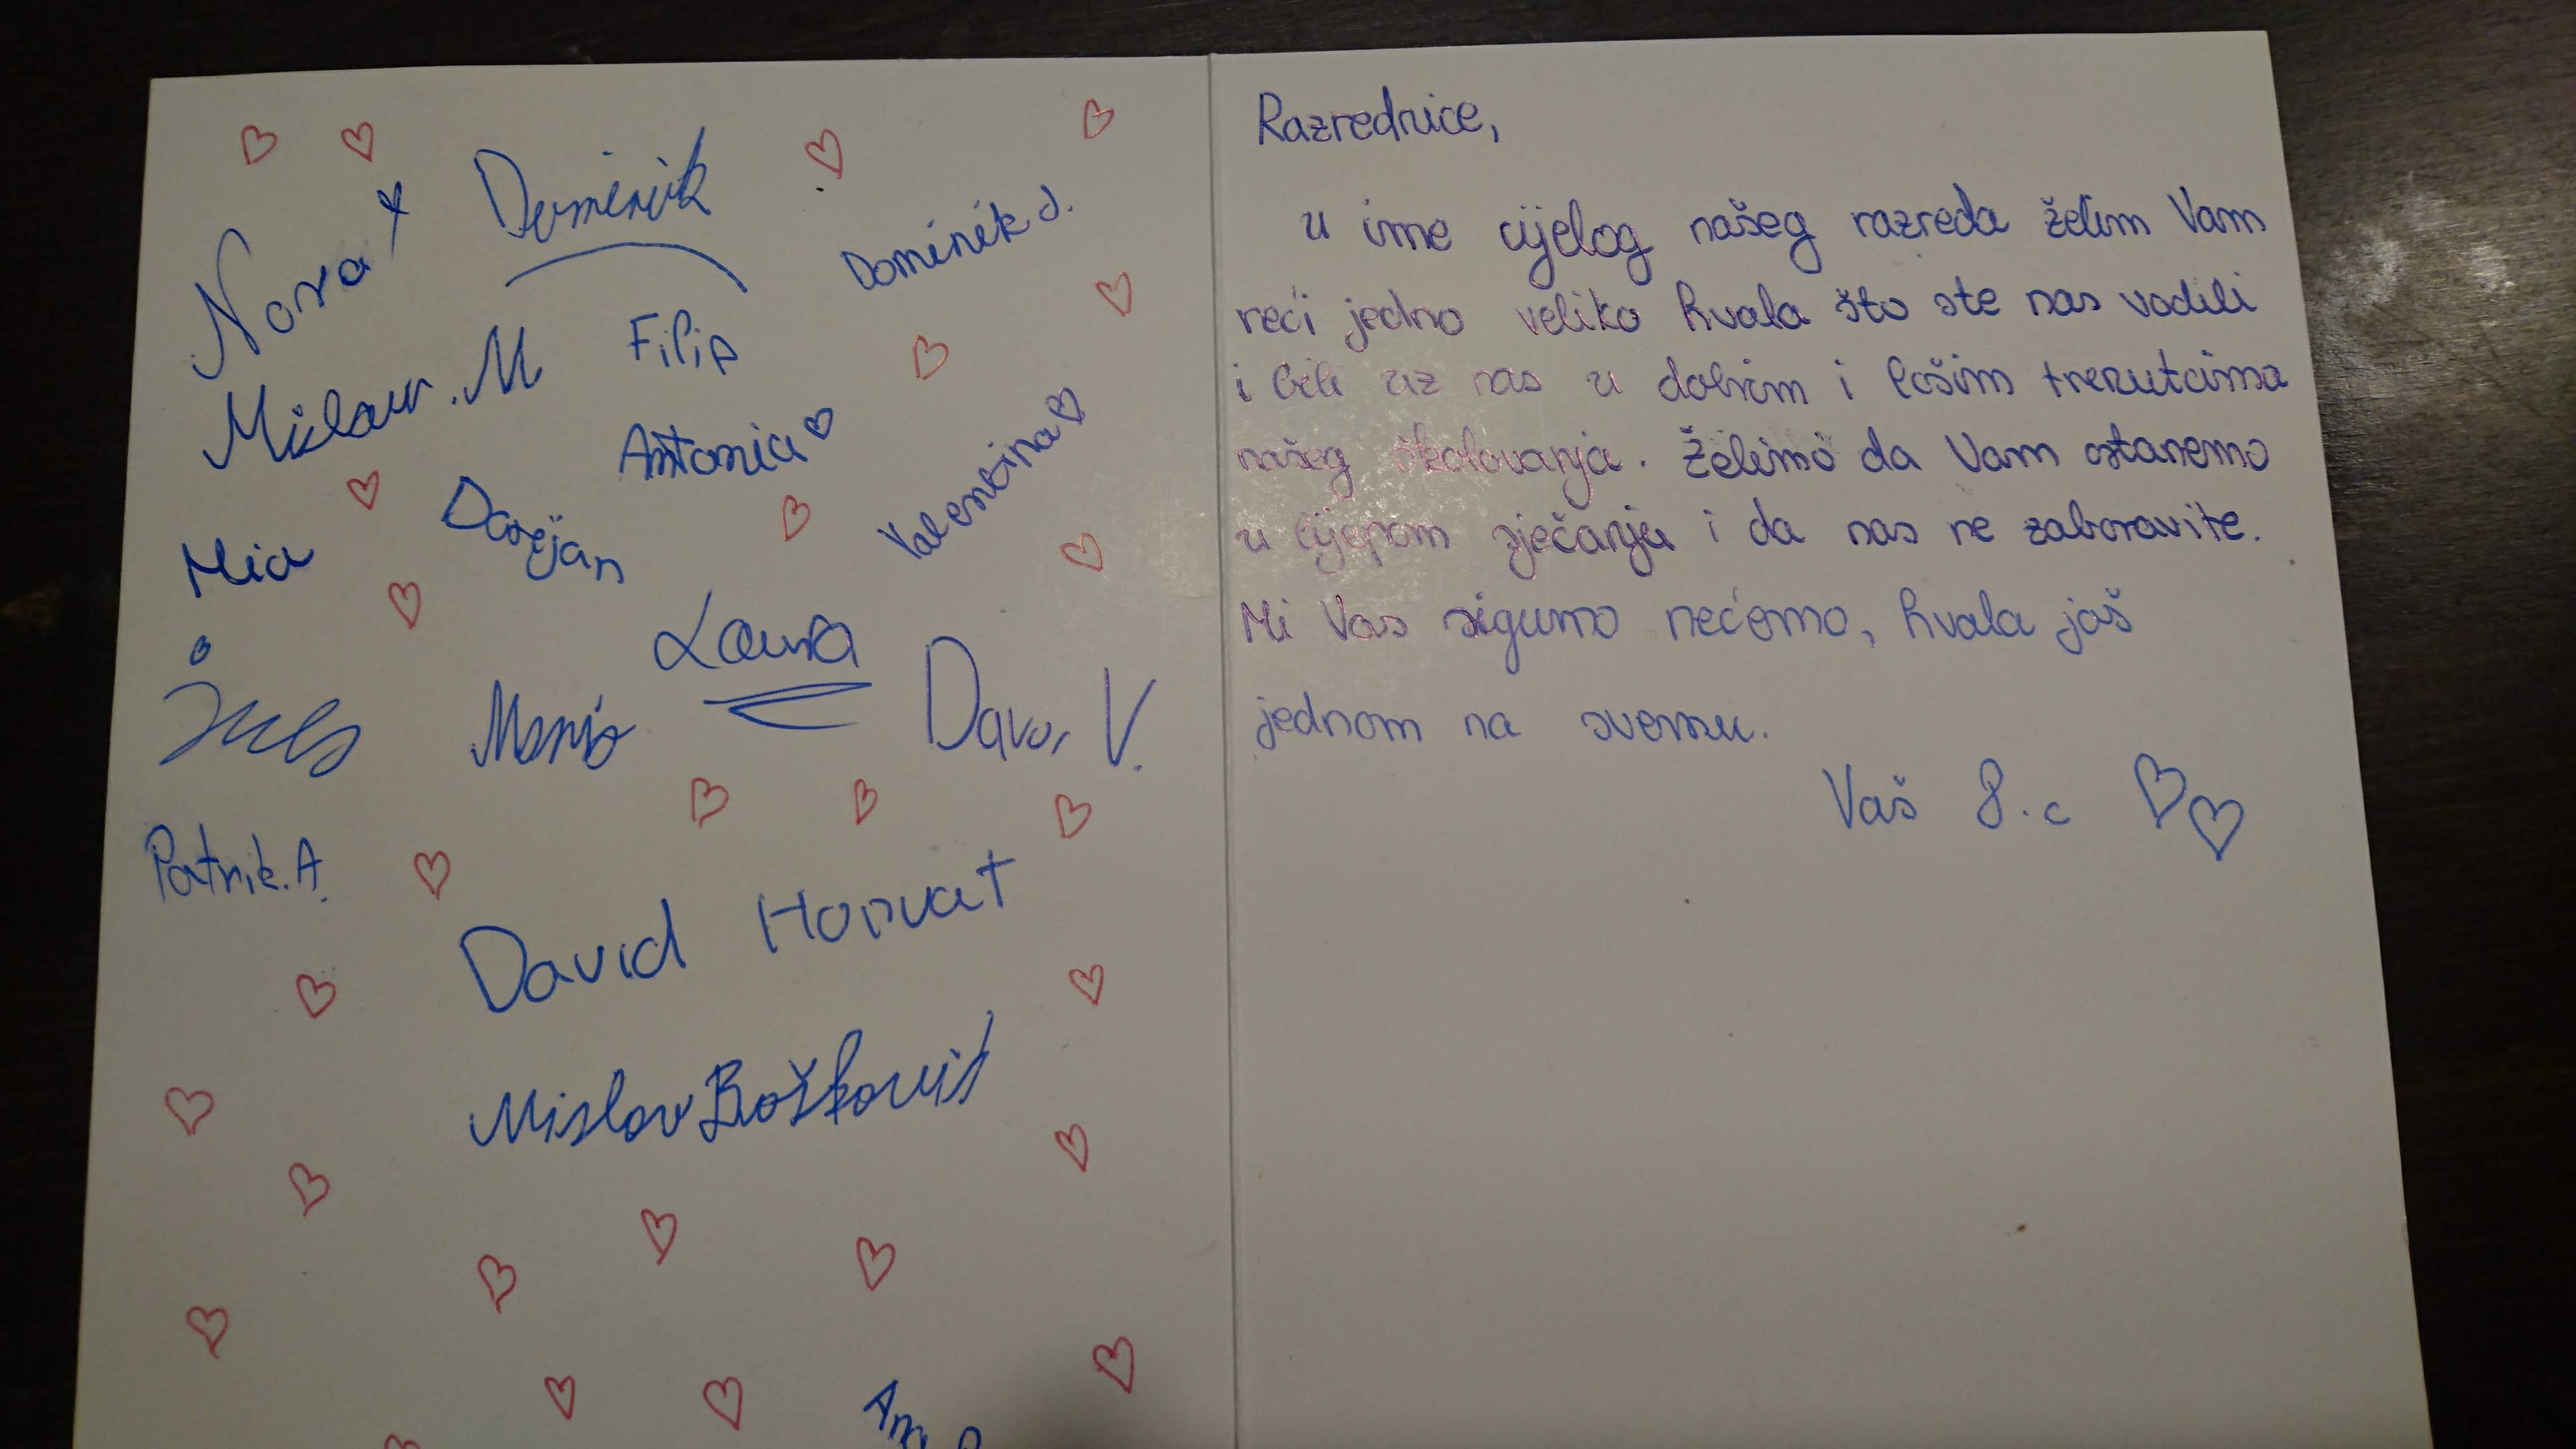 Nora
Dominik
Dominik J.
Mislav. M
Filip
Antonia
Valentina
Mia
Darijan
Laura
Ines
Mario
Davor V.
Patrik. A.
David Horvat
Mislav Bošković
Razrednice,
u ime cijelog našeg razreda želim Vam
reći jedno veliko hvala što ste nas vodili
i bili uz nas u dobrim i lošim trenutcima
našeg školovanja. Želimo da Vam ostanemo
u lijepom sjećanju i da nas ne zaboravite.
Mi Vas sigurno nećemo, hvala još
jednom na svemu.
Vaš 8.c